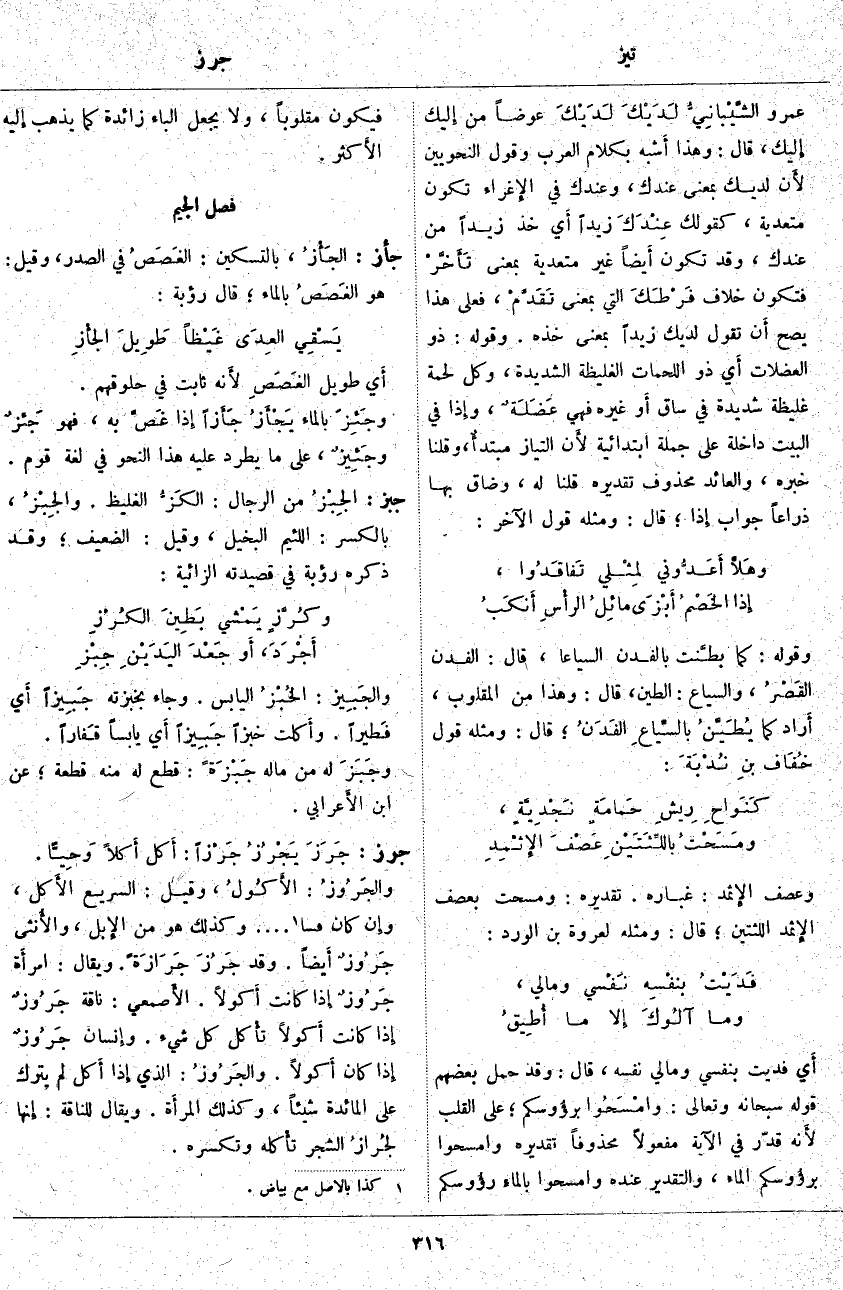 تيز
جرز
عمرو الشَّيْبانِيُّ لَدَيْكَ لَدَيْكَ عوضاً من إليك
إليك، قال : وهذا أشبه بكلام العرب وقول النحويين
لأن لديك بمعنى عندك، وعندك في الإغراء تكون
متعدية، كقولك عِنْدَكَ زيداً أي خذ زيداً من
عندك، وقد تكون أيضاً غير متعدية بمعنى تَأَخَّرْ
فتكون خلاف فَرْطَكَ التي بمعنى تَقَدَّمْ، فعلى هذا
يصح أن تقول لديك زيداً بمعنى خذه . وقوله : ذو
العضلات أي ذو اللحمات الغليظة الشديدة، وكل لحمة
غليظة شديدة في ساق أو غيره فهي عَضَلَةٌ، وإذا في
البيت داخلة على جملة ابتدائية لأن التياز مبتدأ، وقلنا
خبره، والعائد محذوف تقديره قلنا له، وضاق بها
ذراعاً جواب إذا ؛ قال : ومثله قول الآخر :
وهَلاَّ أَعَدُّوني لِمِثْلي تَفاقَدُوا ،
إذا الخَصْمُ أَبْزَى مائِلُ الرأْسِ أَنكَبُ
وقوله : كما بطَّنت بالفدن السياعا، قال : الفدن
القَصْرُ، والسياع : الطين، قال : وهذا من المقلوب،
أراد كما يُطَيَّنُ بالسِّياعِ الفَدَنُ ؛ قال : ومثله قول
خُفَاف بنِ نُدْبَةَ :
كَنَواحِ رِيشِ حَمامَةٍ نَجْدِيَّةٍ ،
ومَسَحْتُ باللِّثَتَيْنِ عَصْفَ الإثْمِدِ
وعصف الإثمد : غباره . تقديره : ومسحت بعصف
الإثمد اللثتين ؛ قال : ومثله لعروة بن الورد :
فَدَيْتُ بنَفْسِهِ نَفْسي ومالي ،
وما آلُوكَ إلا ما أُطِيقُ
أي فديت بنفسي ومالي نفسه، قال : وقد حمل بعضهم
قوله سبحانه وتعالى : وامْسَحُوا برؤوسكم ؛ على القلب
لأنه قدّر في الآية مفعولاً محذوفاً تقديره وامسحوا
برؤوسكم الماء، والتقدير عنده وامسحوا بالماء رؤوسكم
فيكون مقلوباً، ولا يجعل الباء زائدة كما يذهب إليه
الأكثر .
فصل الجيم
جأز : الجَأْزُ، بالتسكين : الغَصَصُ في الصدر، وقيل :
هو الغَصَصُ بالماء ؛ قال رؤبة :
يَسْقِي العِدَى غَيْظاً طَوِيلَ الجأْزِ
أي طويل الغَصَصِ لأنه ثابت في حلوقهم .
وجَئِزَ بالماء يَجْأَزُ جَأَزاً إذا غَصَّ به، فهو جَئِزٌ
وجَئِيزٌ، على ما يطرد عليه هذا النحو في لغة قوم .
جبز : الجِبْزُ من الرجال : الكَزُّ الغليظ . والجِبْزُ،
بالكسر : اللئيم البخيل، وقيل : الضعيف ؛ وقد
ذكره رؤبة في قصيدته الزائية :
وكُرَّزٍ يَمْشِي بَطِينَ الكُرْزِ
أَجْرَدَ، أو جَعْدَ اليَدَيْنِ جِبْزِ
والجَبِيز : الخُبْزُ اليابس . وجاء بخبزته جَبِيزاً أي
فَطِيراً . وأكلت خبزاً جَبِيزاً أي يابساً قَفاراً .
وجَبَزَ له من ماله جَبْزَةً : قطع له منه قطعة ؛ عن
ابن الأعرابي .
جرز : جَرَزَ يَجْرُزُ جَرْزاً : أكل أكلاً وَحِيًّا .
والجَرُوزُ : الأَكُولُ، وقيل : السريع الأكل،
وإن كان قسا١ .... وكذلك هو من الإبل، والأُنثى
جَرُوزٌ أيضاً . وقد جَرُزَ جَرَازَةً . ويقال : امرأة
جَرُوزٌ إذا كانت أكولاً . الأصمعي : ناقة جَرُوزٌ
إذا كانت أكولاً تأكل كل شيء . وإنسان جَرُوزٌ
إذا كان أكولاً . والجَرُوزُ : الذي إذا أكل لم يترك
على المائدة شيئاً، وكذلك المرأة . ويقال للناقة : إنها
لجُرازُ الشجر تأكله وتكسره .
١ كذا بالاصل مع بياض .
٣١٦